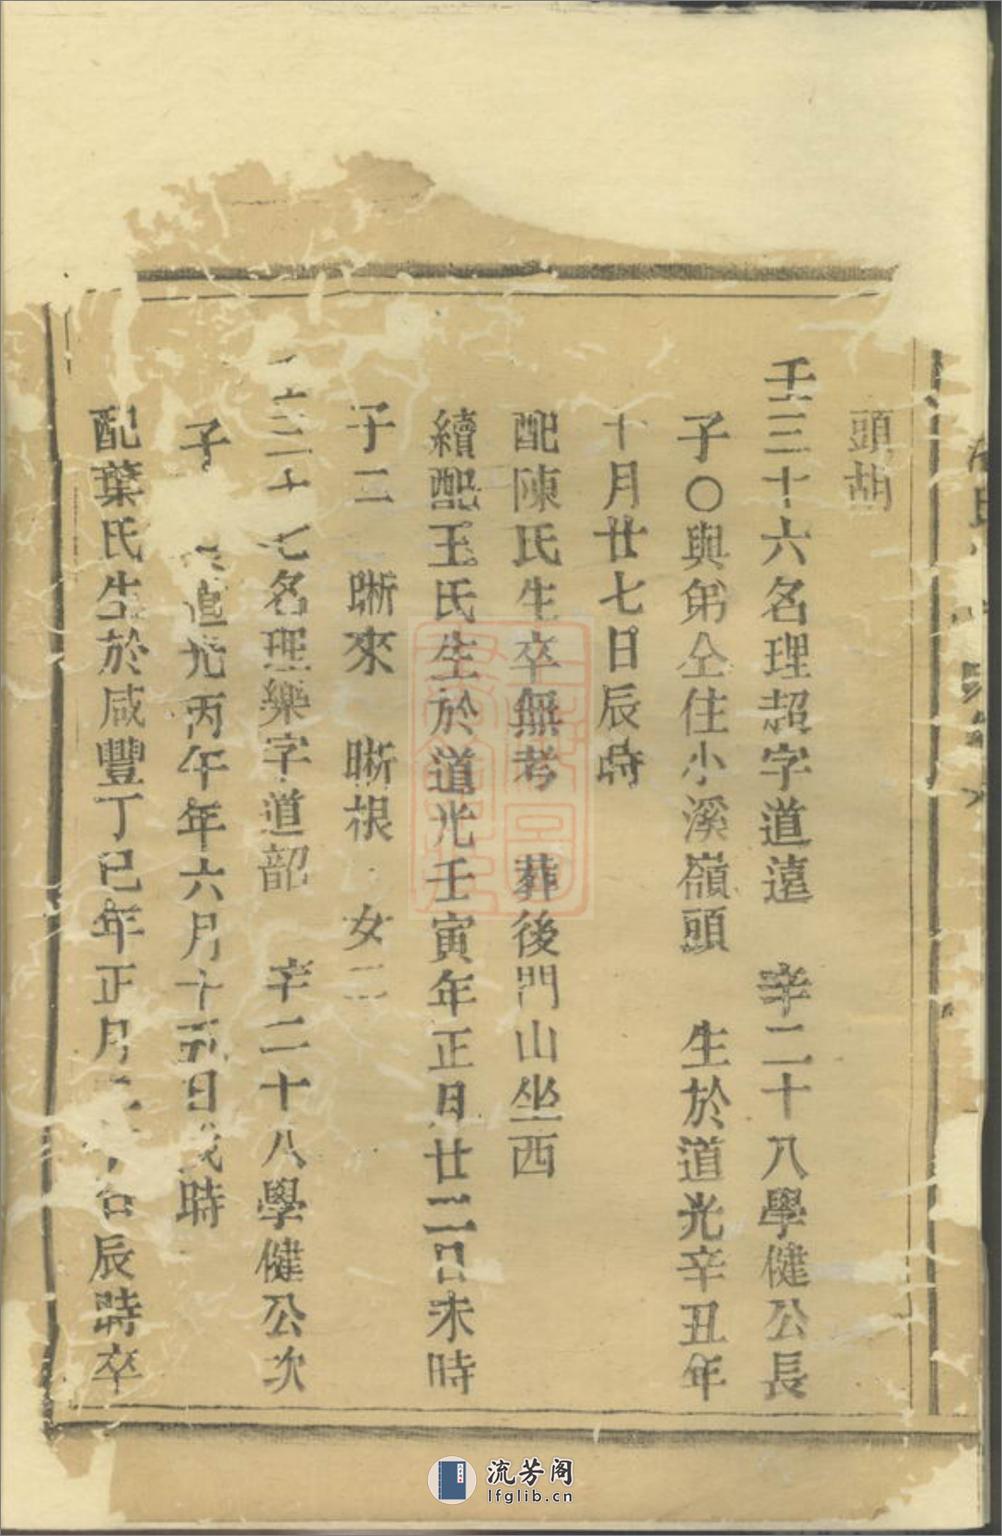 頭胡
壬三十六名理超字道遠　辛二十八學健公長
子〇與弟仝住小溪嶺頭　生於道光辛丑年
十月廿七日辰時
配陳氏生卒無考　葬後門山坐西
續配王氏生於道光壬寅年正月廿二日未時
子二　晰來　晰根　女二
壬三十七名理樂字道韶　辛二十八學健公次
子　道光丙午年六月十五日戌時
配葉氏生於咸豐丁巳年正月　日辰時卒
流芳阁
lfglib.cn